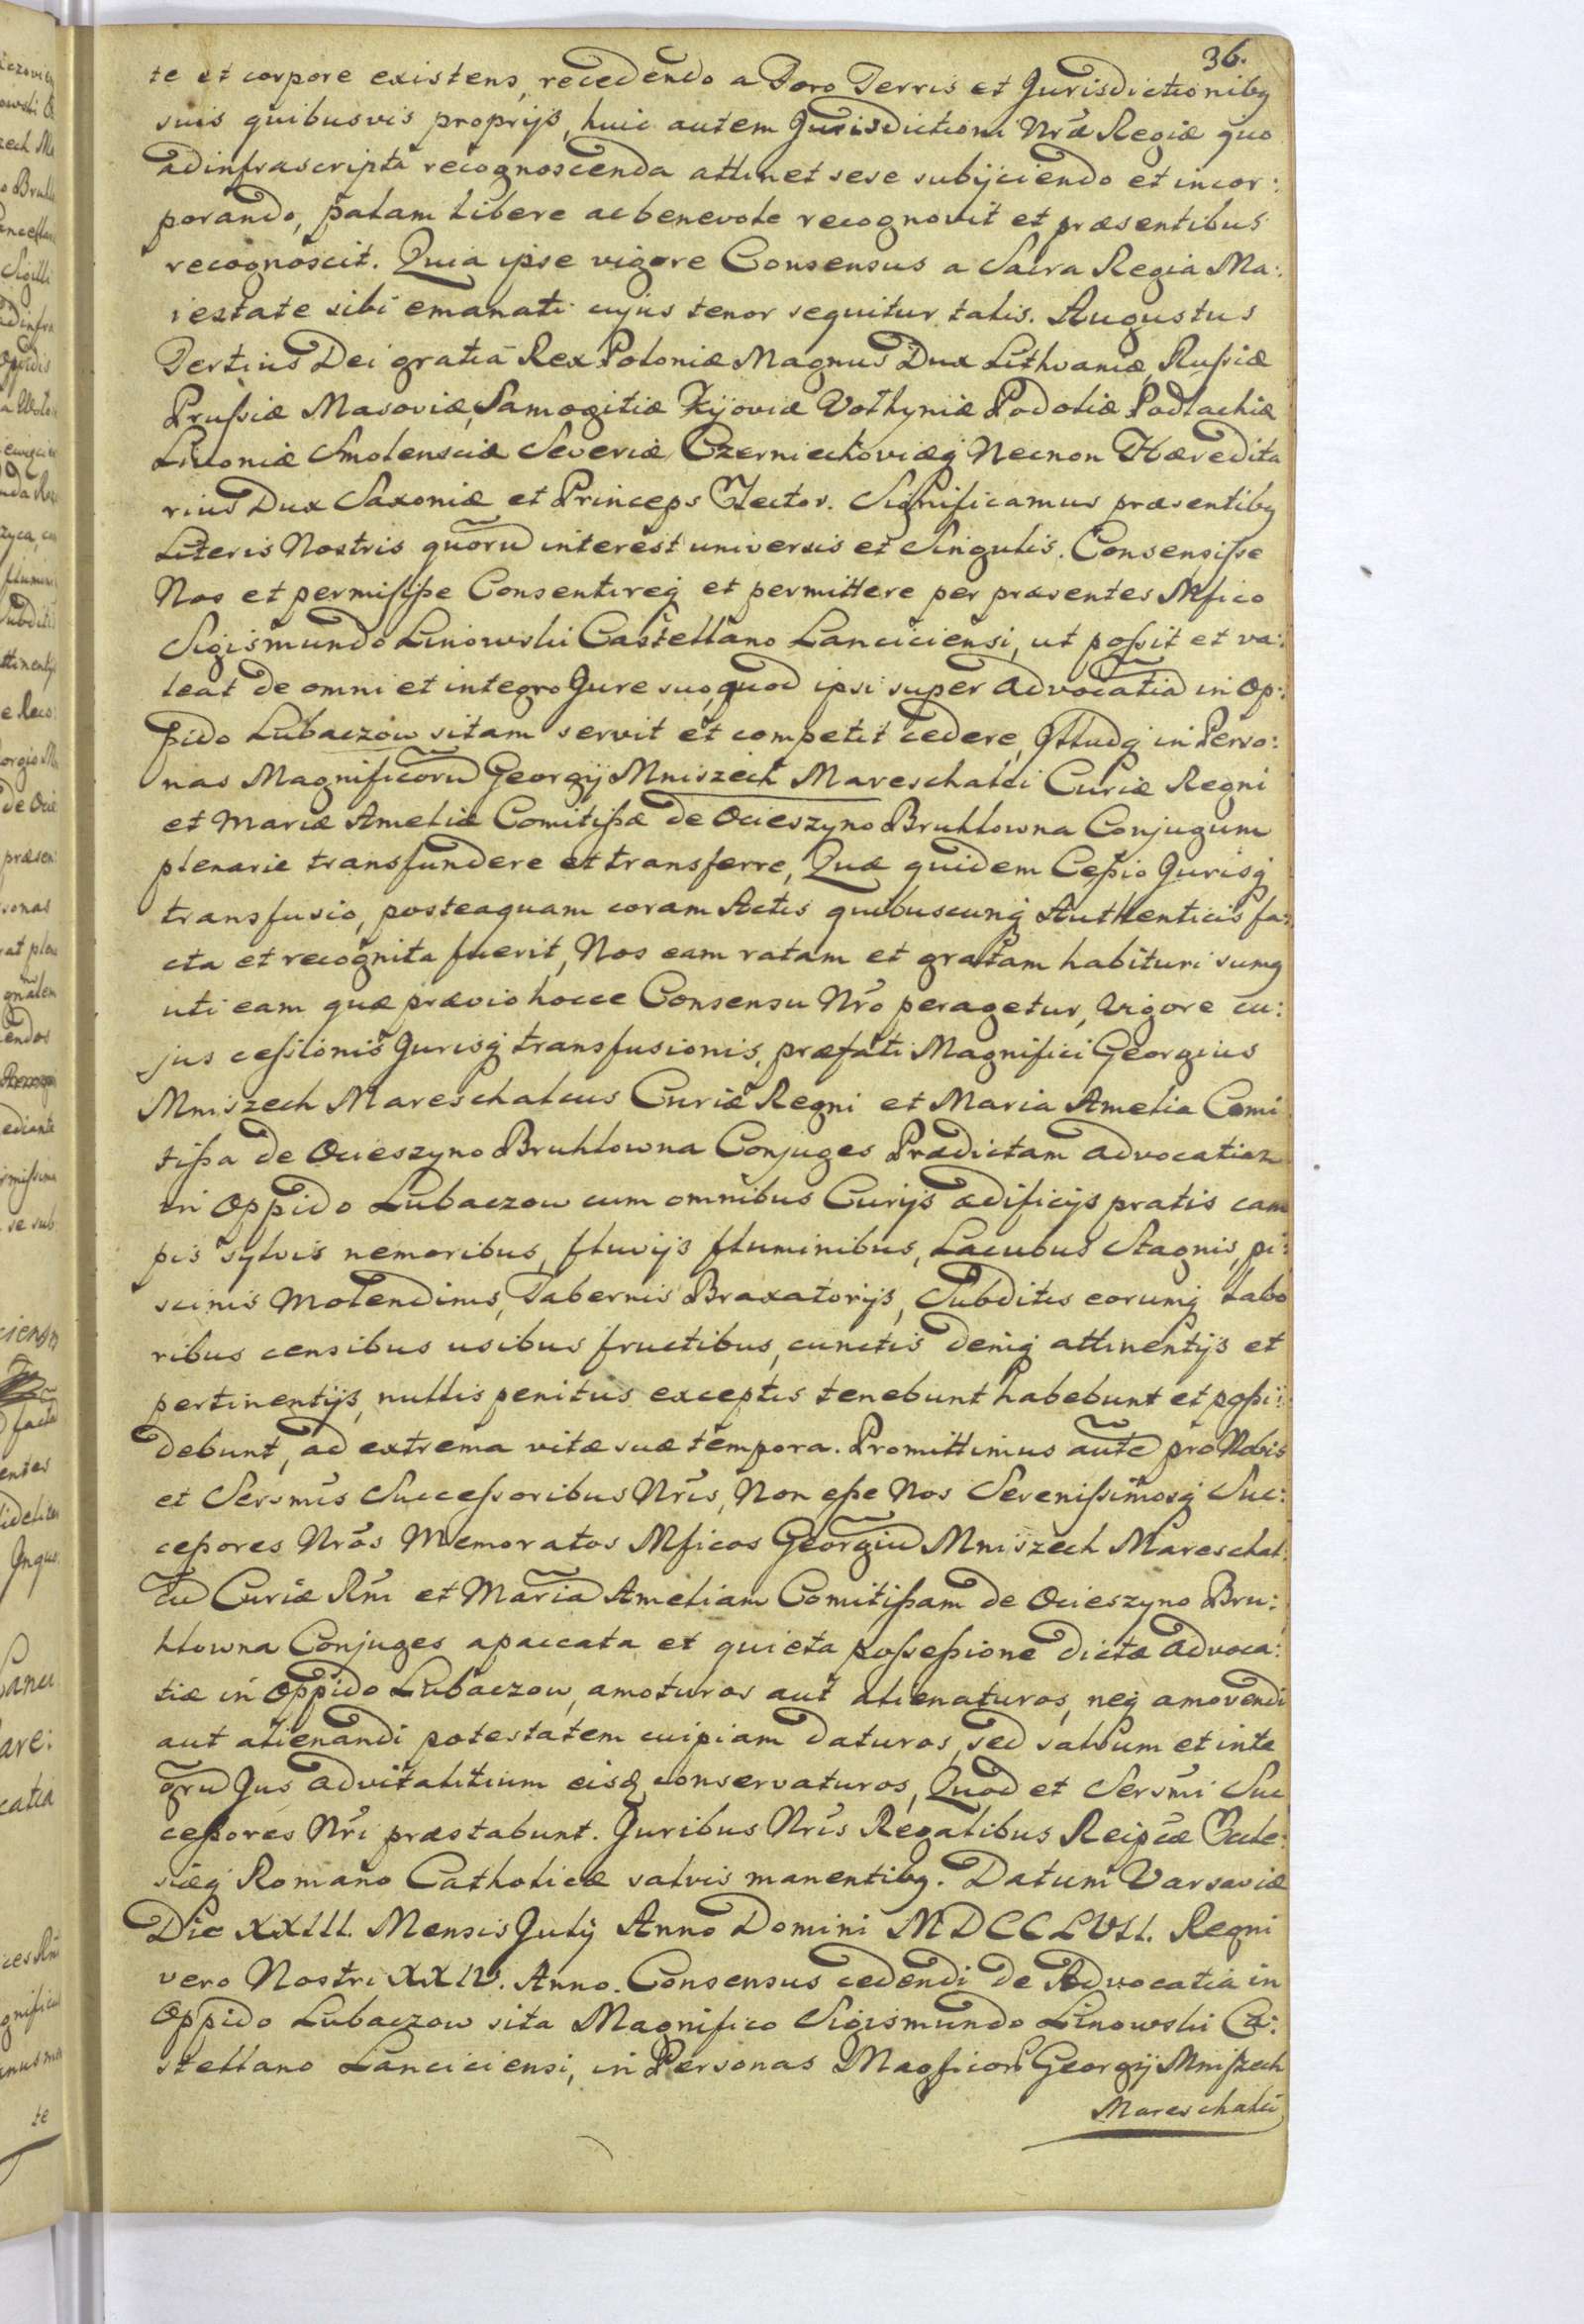 36.
te et corpore existens, recedendo a Foro Terris et Jurisdictionibq
suis quibusvis proprijs, huic autem Jurisdictioni Nrã Regiæ quo
ad infrascripta recognoscenda attinet sese subijciendo et incor:
porando, palam libere ac benevole recognovit et præsentibus
recognoscit. Quia ipse vigore Consensus a Sacra Regia Ma:
iestate sibi emanati cujus tenor sequitur talis. Augustus
Tertius Dei gratia Rex Poloniæ Magnus Dux Lithvaniæ, Russiæ
Prussiæ Masoviæ, Samogitiæ Kijoviæ Volhyniæ Podoliæ Podlachiæ
Livoniæ Smolensciæ Severiæ Czerniechoviæq Necnon Hæredita
rius Dux Saxoniæ et Princeps Elector. Significamus præsentibq
Literis Nostris quorũ interest universis et Singulis. Consensisse
Nos et permisisse Consentireq et permittere per præsentes Mfico
Sigismundo Linowski Castellano Lanciciensi, ut possit et va:
leat de omni et integro Jure suo, quod ipsi super Advocatiã in Op:
pido Lubaczow sitam servit et competit cedere, Illudq in Perso:
nas Magnificorũ Georgij Mniszech Mareschalci Curiæ Regni
et Mariæ Ameliæ Comitissæ de Ocieszyno Bruhlowna Conjugum
plenarie transfundere et transferre, Quæ quidem Cessio Jurisq
transfusio, posteaquam coram Actis quibuscunq Authenticis fa:
cta et recognita fuerit, Nos eam ratam et gratam habituri sumq
uti eam quæ prævio hocce Consensu Nrõ peragetur, Vigore cu:
jus cessionis Jurisq transfusionis, præfati Magnifici Georgius
Mniszech Mareschalcus Curiæ Regni et Maria Amelia Comi
tissa de Ocieszyno Bruhlowna Conjuges Prædictam Advocatiam
in Oppido Lubaczow cum omnibus Curijs ædificijs pratis cam
pis sylvis nemoribus, fluvijs fluminibus, Lacubus Stagnis, pi:
scinis Molendinis, Tabernis Braxatorijs, Subditis eorumq labo
ribus censibus usibus fructibus, cunctis deniq attinentijs et
pertinentijs, nullis penitus exceptis tenebunt habebunt et possi:
debunt, ad extrema vitæ suæ tempora. Promittimus autẽ pro Nobis
et Sersmis Successoribus Nris, Non esse Nos Serenissimosq Suc:
cessores Nrõs Memoratos Mficos Georgiũ Mniszech Mareschal:
cũ Curiæ Rñi et Mariã Ameliam Comitissam de Ocieszyno Bru:
hlowna Conjuges apaccata et quieta possessione dictæ Advoca:
tiæ in Oppido Lubaczow, amoturos aut alienaturos, neq amovendi
aut alienandi potestatem cuipiam daturos, sed salvum et inte
grũ Jus advitalitium eisq conservaturos, Quod et Sersmi Suc
cessores Nri præstabunt. Juribus Nris Regalibus Reipcæ Eccle:
siæq Romano Catholicæ salvis manentibq. Datum Varsaviæ
Die XXIII. Mensis Julij Anno Domini MDCCLVII. Regni
vero Nostri XXIV. Anno. Consensus cedendi de Advocatia in
Oppido Lubaczow sita Magnifico Sigismundo Linowski Ca:
stellano Lanciciensi, in Personas Magficorũ Georgij Mniszech
Mareschalci